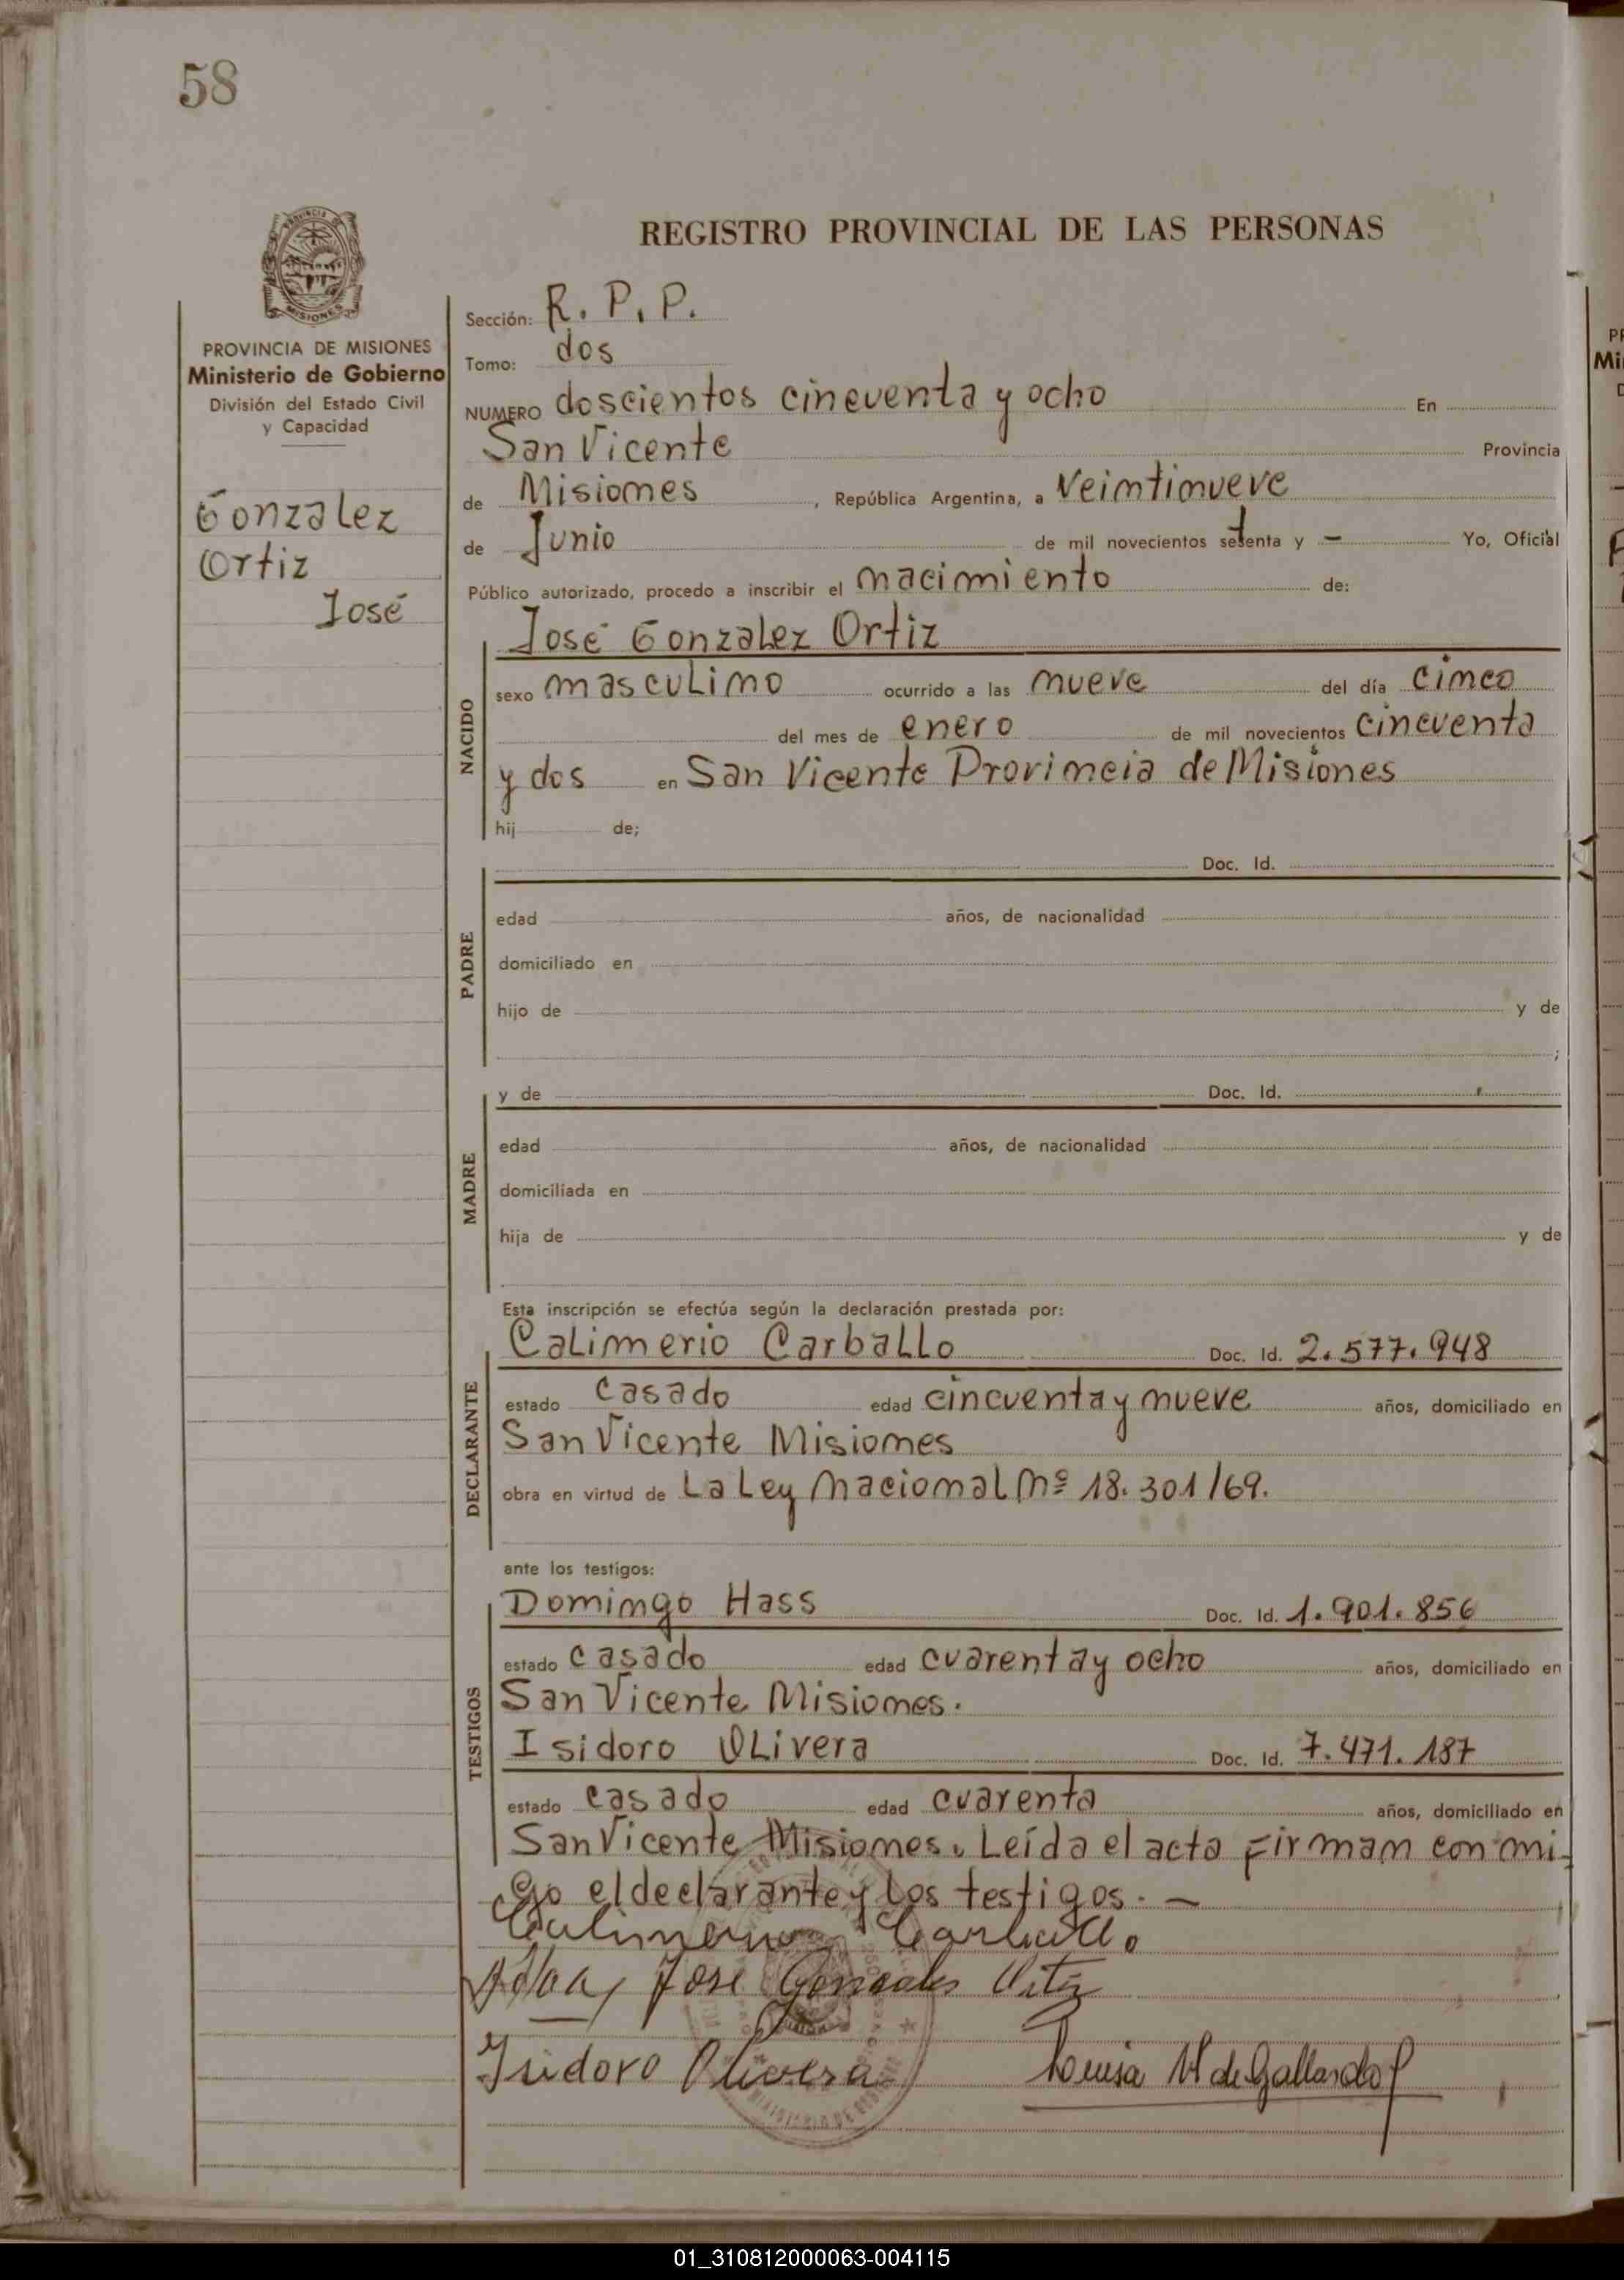 58
REGISTRO PROVINCIAL DE LAS PERSONAS
MISIONES
PROVINCIA DE MISIONES
Ministerio de Gobierno
División del Estado Civil
y Capacidad
Gonzalez
Ortiz
José
Sección: R. P. P.
Tomo: dos
NUMERO doscientos cincuenta y ocho En
San Vicente Provincia
de Misiones, República Argentina, a Veintinueve
de Junio de mil novecientos setenta y — Yo, Oficial
Público autorizado, procedo a inscribir el nacimiento de:
José Gonzalez Ortiz
NACIDO
sexo masculino ocurrido a las nueve del día cinco
del mes de enero de mil novecientos cincuenta
y dos en San Vicente Provincia de Misiones
hij de;
PADRE
Doc. Id.
edad años, de nacionalidad
domiciliado en
hijo de y de
;
MADRE
y de Doc. Id.
edad años, de nacionalidad
domiciliada en
hija de y de
Esta inscripción se efectúa según la declaración prestada por:
DECLARANTE
Calimerio Carballo Doc. Id. 2.577.948
estado casado edad cincuenta y nueve años, domiciliado en
San Vicente Misiones
obra en virtud de La Ley Nacional Nº 18.301/69.
ante los testigos:
TESTIGOS
Domingo Hass Doc. Id. 1.901.856
estado casado edad cuarenta y ocho años, domiciliado en
San Vicente Misiones.
Isidoro Olivera Doc. Id. 7.471.187
estado casado edad cuarenta años, domiciliado en
San Vicente Misiones. Leída el acta Firman con mi-
go el declarante y los testigos. —
Calimerio Carballo.
José Gonzales Ortiz
Isidoro Olivera Louisa M de Gallardo
01_310812000063-004115